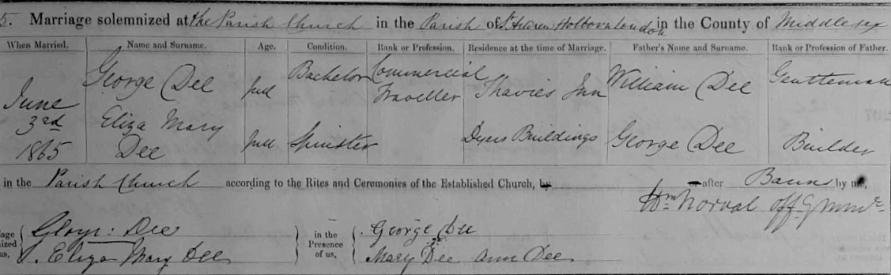 5. Marriage solemnized at the Parish Church in the Parish of St Andrew Holborn London in the County of Middlesex
When Married. Name and Surname. Age. Condition. Rank or Profession. Residence at the time of Marriage. Father's Name and Surname. Rank or Profession of Father.
June 3rd 1865
George Dee full Bachelor Commercial Traveller Thavies Inn William Dee Gentleman
Eliza Mary Dee full Spinster Dyers Buildings George Dee Builder
in the Parish Church according to the Rites and Ceremonies of the Established Church, by after Banns by me,
Wm Norval
George Dee in the George Dee
Eliza Mary Dee Presence of us, Mary Dee Ann Dee